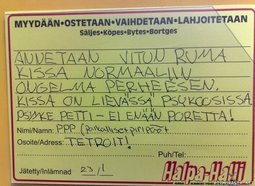 MYYDÄÄN • OSTETAAN • VAIHDETAAN • LAHJOITETAAN
Säljes • Köpes • Bytes • Bortges
ANNETAAN VITUN RUMA
KISSA NORMAALIIN
ONGELMA PERHEESEN.
KISSA ON LIEVÄSSÄ PSYKOOSISSA
PSYYKE PETTI - EI ENÄÄN PORETTA!
Nimi/Namn: PPP (paikalliset piripäät
Osoite/Adress: TETROIT!
Puh/Tel:
Jätetty/Inlämnad 23/1
Halpa-Halli